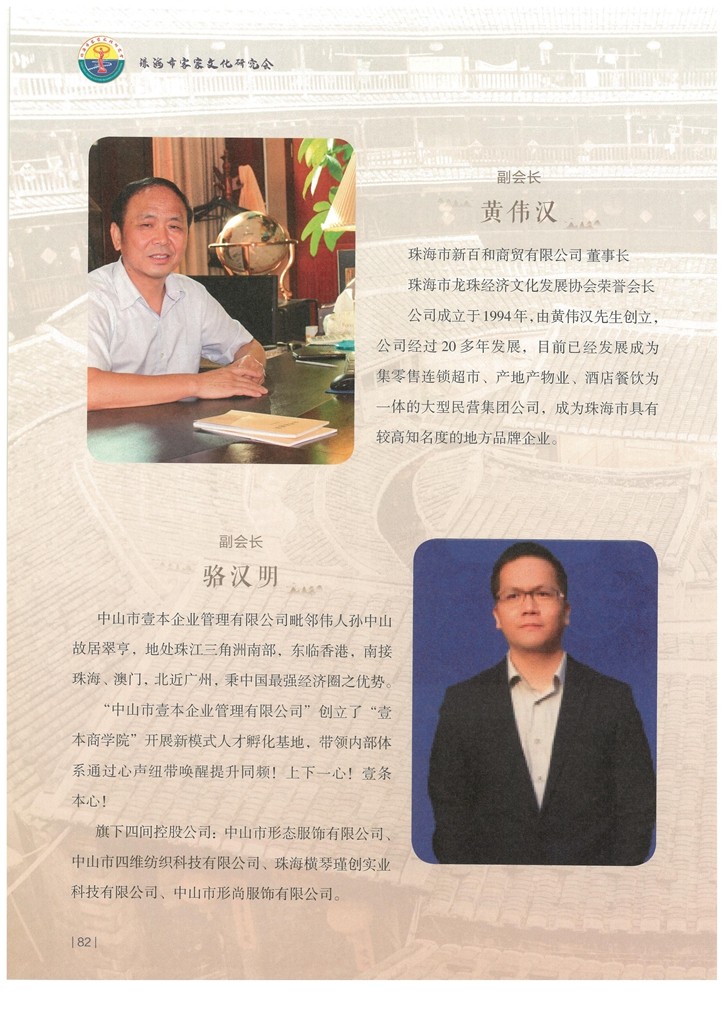 珠海市客家文化研究会
副会长
黄伟汉
珠海市新百和商贸有限公司 董事长
珠海市龙珠经济文化发展协会荣誉会长
公司成立于1994年，由黄伟汉先生创立，
公司经过 20 多年发展，目前已经发展成为
集零售连锁超市、产地产物业、酒店餐饮为
一体的大型民营集团公司，成为珠海市具有
较高知名度的地方品牌企业。
副会长
骆汉明
中山市壹本企业管理有限公司毗邻伟人孙中山
故居翠亨，地处珠江三角洲南部，东临香港，南接
珠海、澳门，北近广州，秉中国最强经济圈之优势。
“中山市壹本企业管理有限公司”创立了“壹
本商学院”开展新模式人才孵化基地，带领内部体
系通过心声纽带唤醒提升同频！上下一心！壹条
本心！
旗下四间控股公司：中山市形态服饰有限公司、
中山市四维纺织科技有限公司、珠海横琴瑾创实业
科技有限公司、中山市形尚服饰有限公司。
| 82 |